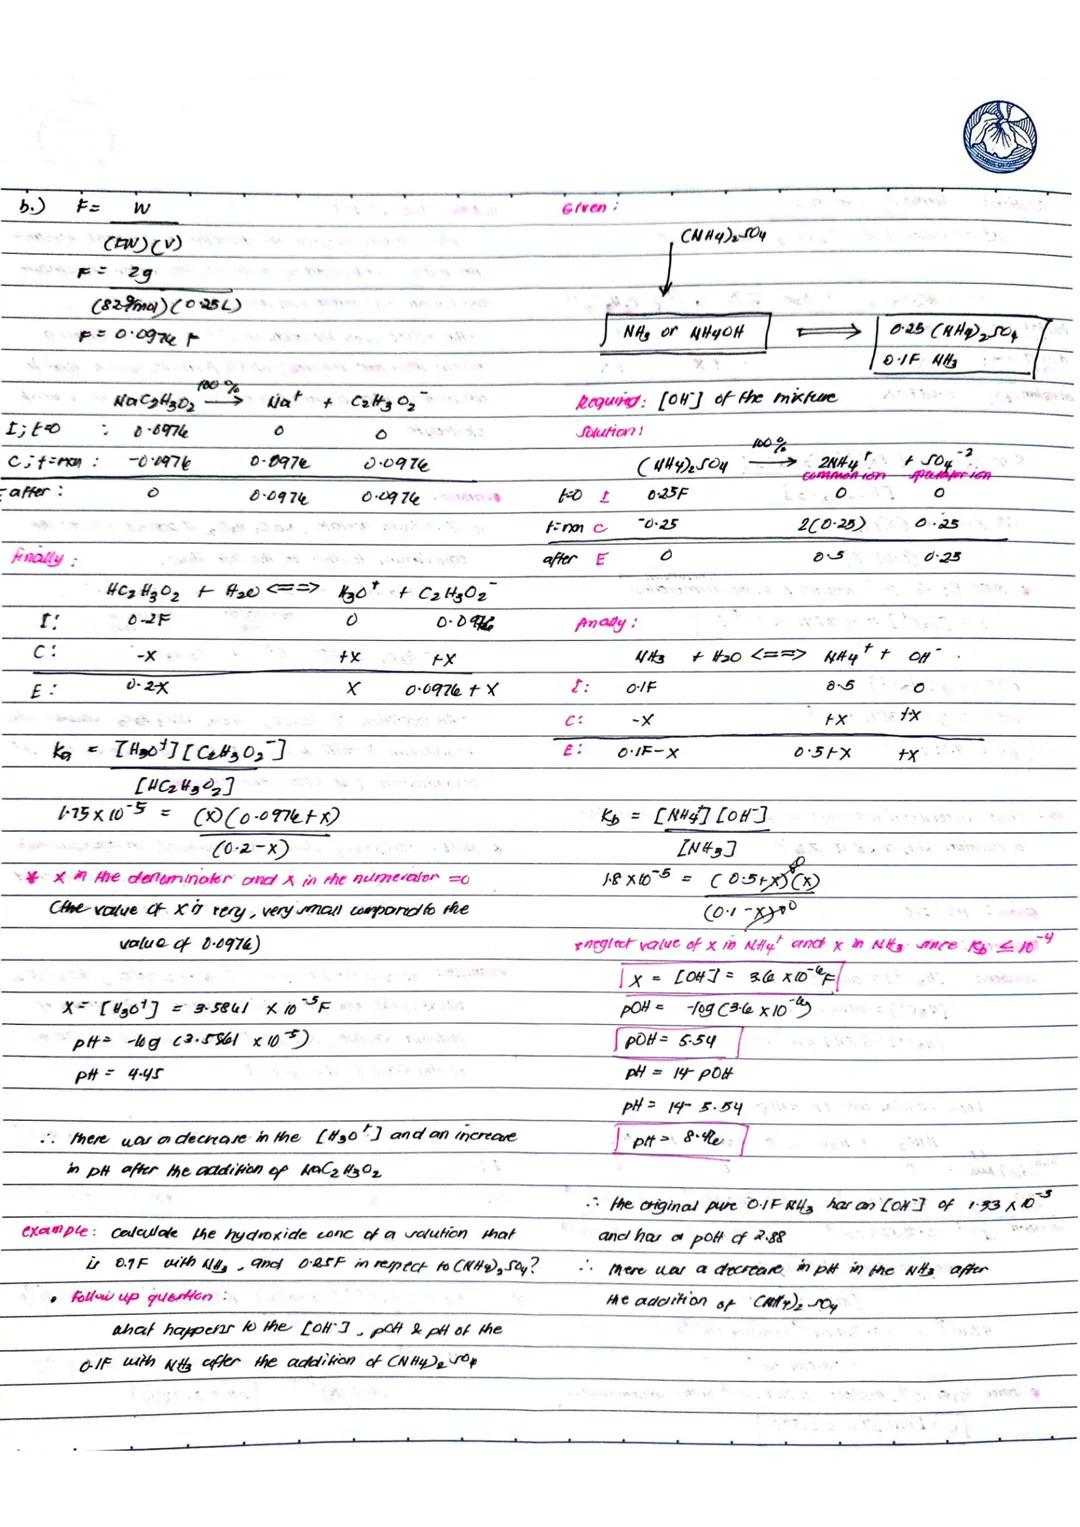 b.) F = W
(FW)(V)
F = 2g
(82 g/mol)(0.25L)
F = 0.0976 F
NaC2H3O2 100% → Na+ + C2H3O2-
I; t=0 : 0.0976 0 0
C; t=rxn : -0.0976 0.0976 0.0976
after : 0 0.0976 0.0976
finally :
HC2H3O2 + H2O <==> H3O+ + C2H3O2-
I: 0.2F 0 0.0976
C: -x +x +x
E: 0.2-x x 0.0976 + x
Ka = [H3O+][C2H3O2-]
[HC2H3O2]
1.75 x 10-5 = (x)(0.0976+x)
(0.2-x)
* x in the denominator and x in the numerator =0
(the value of x is very, very small compared to the
value of 0.0976)
x = [H3O+] = 3.5861 x 10-5 F
pH = -log (3.5861 x 10-5)
pH = 4.45
∴ there was a decrease in the [H3O+] and an increase
in pH after the addition of NaC2H3O2
example: calculate the hydroxide conc of a solution that
is 0.1F with NH3, and 0.25F in respect to (NH4)2SO4?
• Follow up question :
what happens to the [OH-], pOH & pH of the
0.1F with NH3 after the addition of (NH4)2SO4
Given :
(NH4)2SO4
NH3 or NH4OH ⇌ 0.25 (NH4)2SO4
0.1F NH3
Required: [OH-] of the mixture
Solution:
(NH4)2SO4 100% → 2NH4+ + SO4-2
common ion spectator ion
t=0 I 0.25F 0 0
t=rxn C -0.25 2(0.25) 0.25
after E 0 0.5 0.25
Finally :
NH3 + H2O <==> NH4+ + OH-
I: 0.1F 0.5 0
C: -x +x +x
E: 0.1F-x 0.5+x +x
Kb = [NH4+][OH-]
[NH3]
1.8 x10-5 = (0.5+x)0(x)
(0.1-x)0
*neglect value of x in NH4+ and x in NH3 since Kb ≤ 10-4
x = [OH-] = 3.6 x10-6 F
pOH = -log (3.6 x 10-6)
pOH = 5.54
pH = 14-pOH
pH = 14- 5.54
pH = 8.46
∴ the original pure 0.1F NH3 has an [OH-] of 1.33 x 10-3
and has a pOH of 2.88
∴ there was a decrease in pH in the NH3 after
the addition of (NH4)2SO4